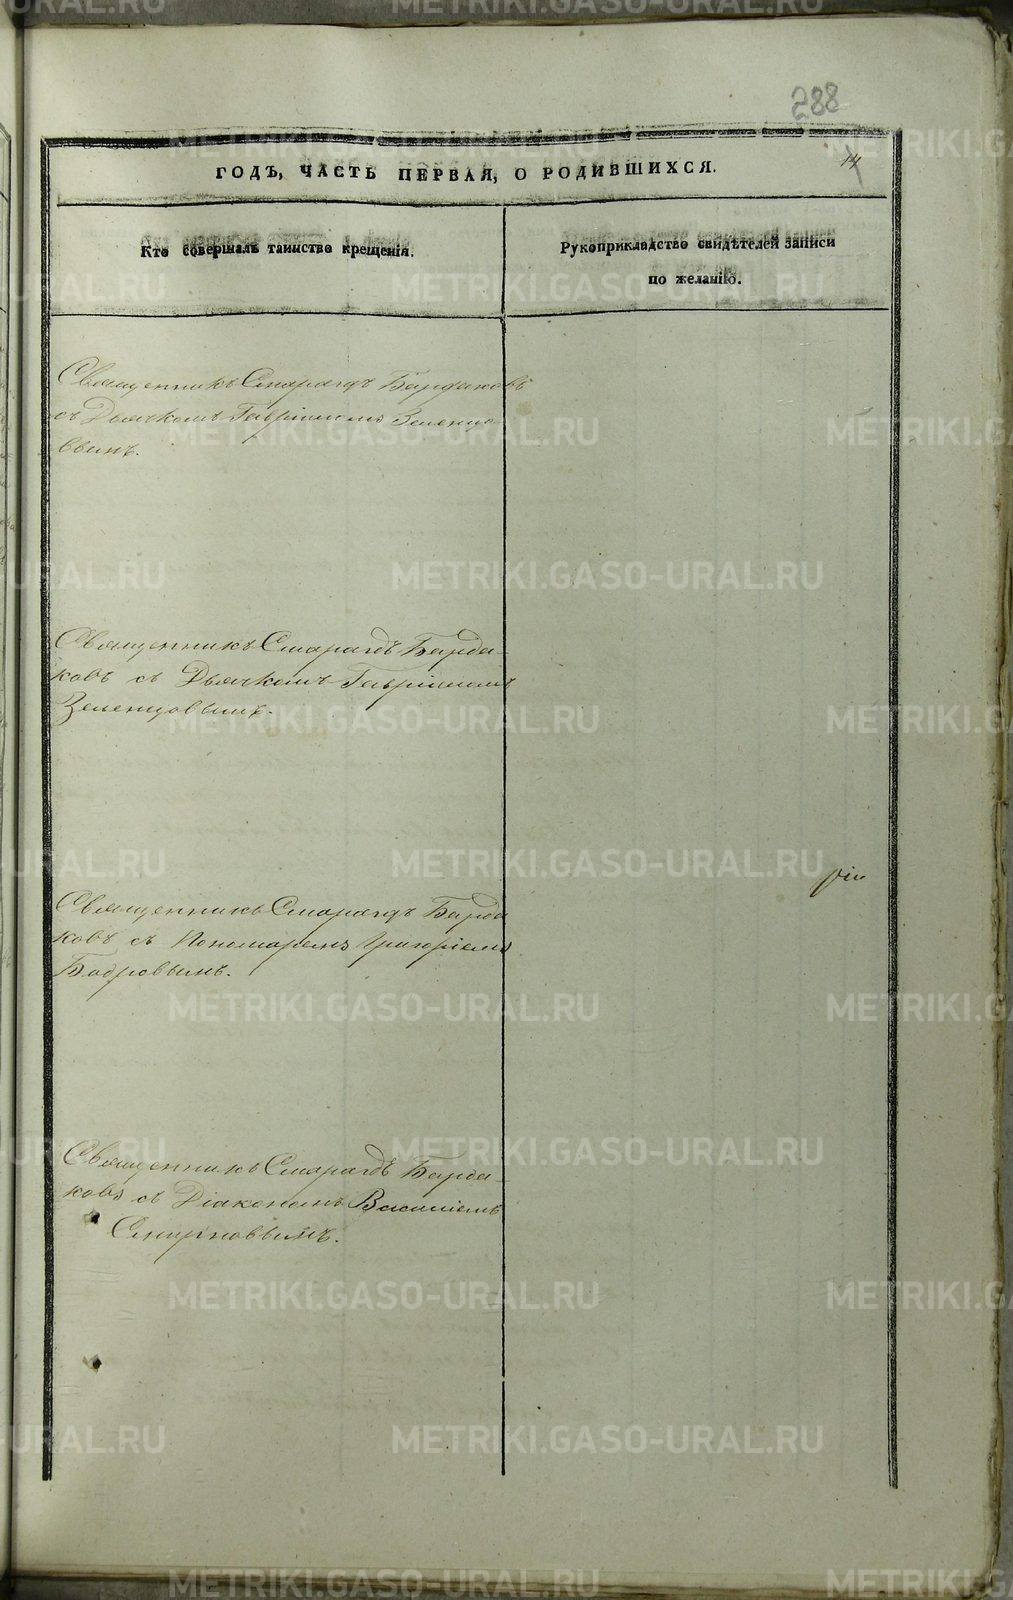 288
14
ГОДЪ, ЧАСТЬ ПЕРВАЯ, О РОДИВШИХСЯ.
Кто совершалъ таинство крещенія.
Рукоприкладство свидѣтелей записи
по желанію.
Священникъ Смарагдъ Бардаковъ
съ Дьячкомъ Гавріиломъ Зеленцо-
вымъ.
Священникъ Смарагдъ Барда-
ковъ съ Дьячкомъ Гавріиломъ
Зеленцовымъ.
Священникъ Смарагдъ Барда
ковъ съ Пономаремъ Григоріемъ
Бобровымъ.
Священникъ Смарагдъ Барда-
ковъ съ Діакономъ Василіемъ
Смирновымъ.
METRIKI.GASO-URAL.RU